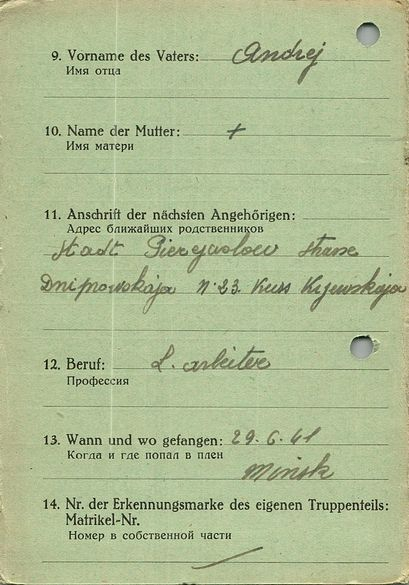 9. Vorname des Vaters: Andrej
Имя отца
10. Name der Mutter: +
Имя матери
11. Anschrift der nächsten Angehörigen:
Адрес ближайших родственников
Stadt Pierejasloew strasse
Dniprowskaja N. 23. Kues Kyjewskaja
12. Beruf: L. arbeiter
Профессия
13. Wann und wo gefangen: 29.6.41
Когда и где попал в плен
Minsk
14. Nr. der Erkennungsmarke des eigenen Truppenteils:
Matrikel-Nr.
Номер в собственной части